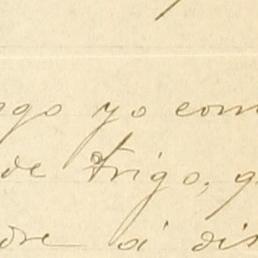 ngo yo com
de trigo, q
dre á dis